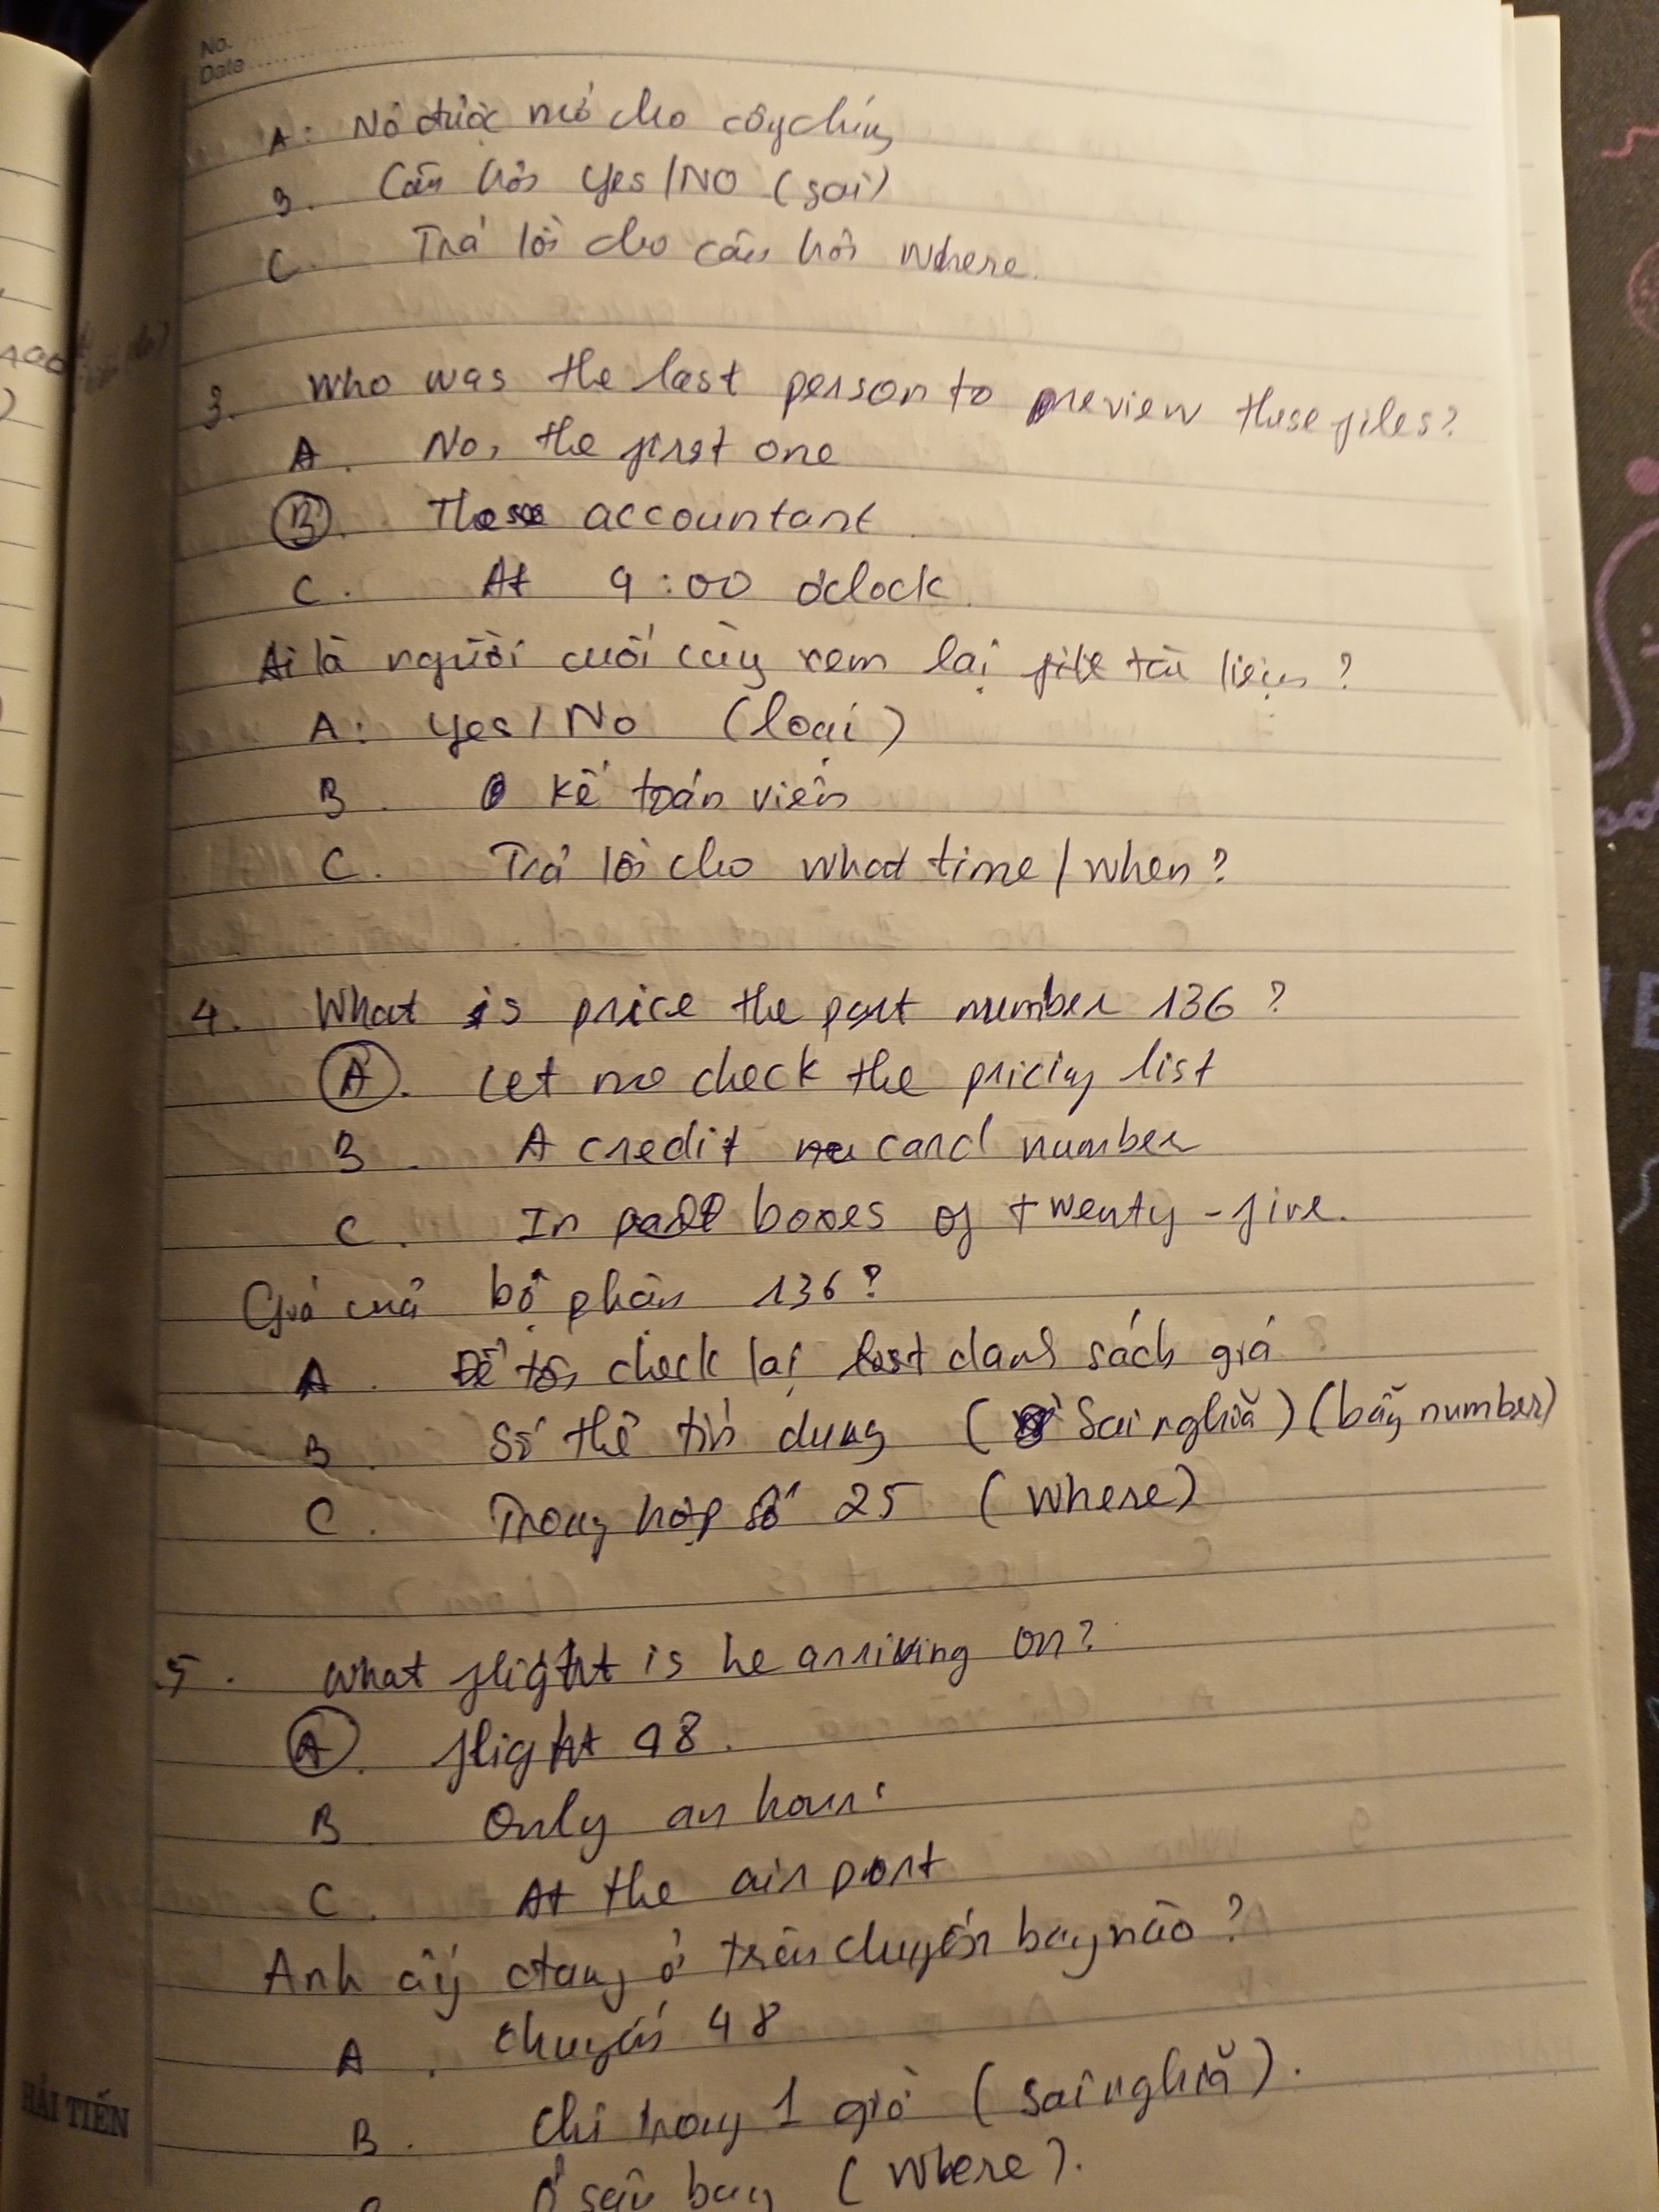 No.
Date
A: Nó được mở cho công chúng
B. Câu hỏi Yes/NO (sai)
C. Trả lời cho câu hỏi where.
3. Who was the last person to review these files?
A. No, the first one
B. The accountant
C. At 9:00 o'clock
Ai là người cuối cùng xem lại file tài liệu?
A: Yes/No (loại)
B. kế toán viên
C. Trả lời cho what time/when?
4. What is price the part number 136?
A. Let me check the pricing list
B. A credit card number
C. In boxes of twenty-five.
Giá của bộ phận 136?
A. Để tôi check lại danh sách giá
B. Số thẻ tín dụng (Sai nghĩa) (bẫy number)
C. Trong hộp số 25 (where)
5. What flight is he arriving on?
A. flight 48.
B Only an hour
C. At the airport
Anh ấy đang ở trên chuyến bay nào?
A. chuyến 48
B. Chỉ trong 1 giờ (sai nghĩa).
Ở sân bay (where).
HẢI TIẾN